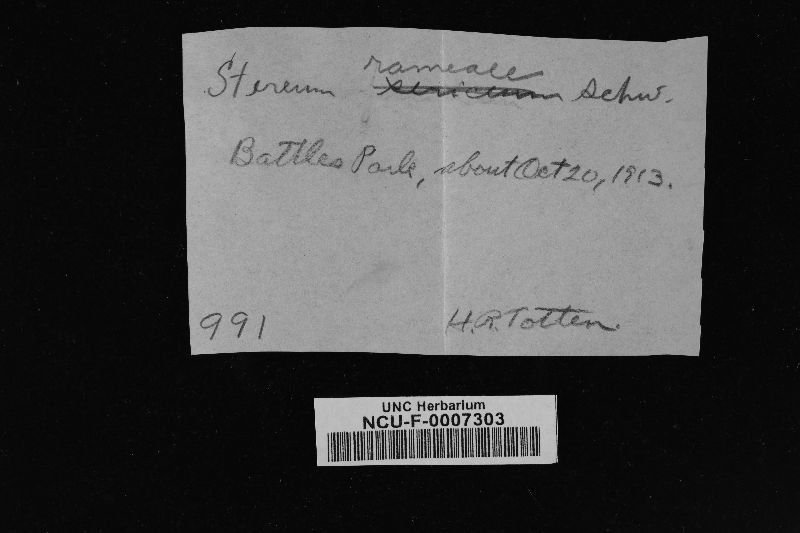 rameale
Stereum sericeum Schw.
Battles Park, about Oct 20, 1913.
991 H.R. Totten.
UNC Herbarium
NCU-F-0007303